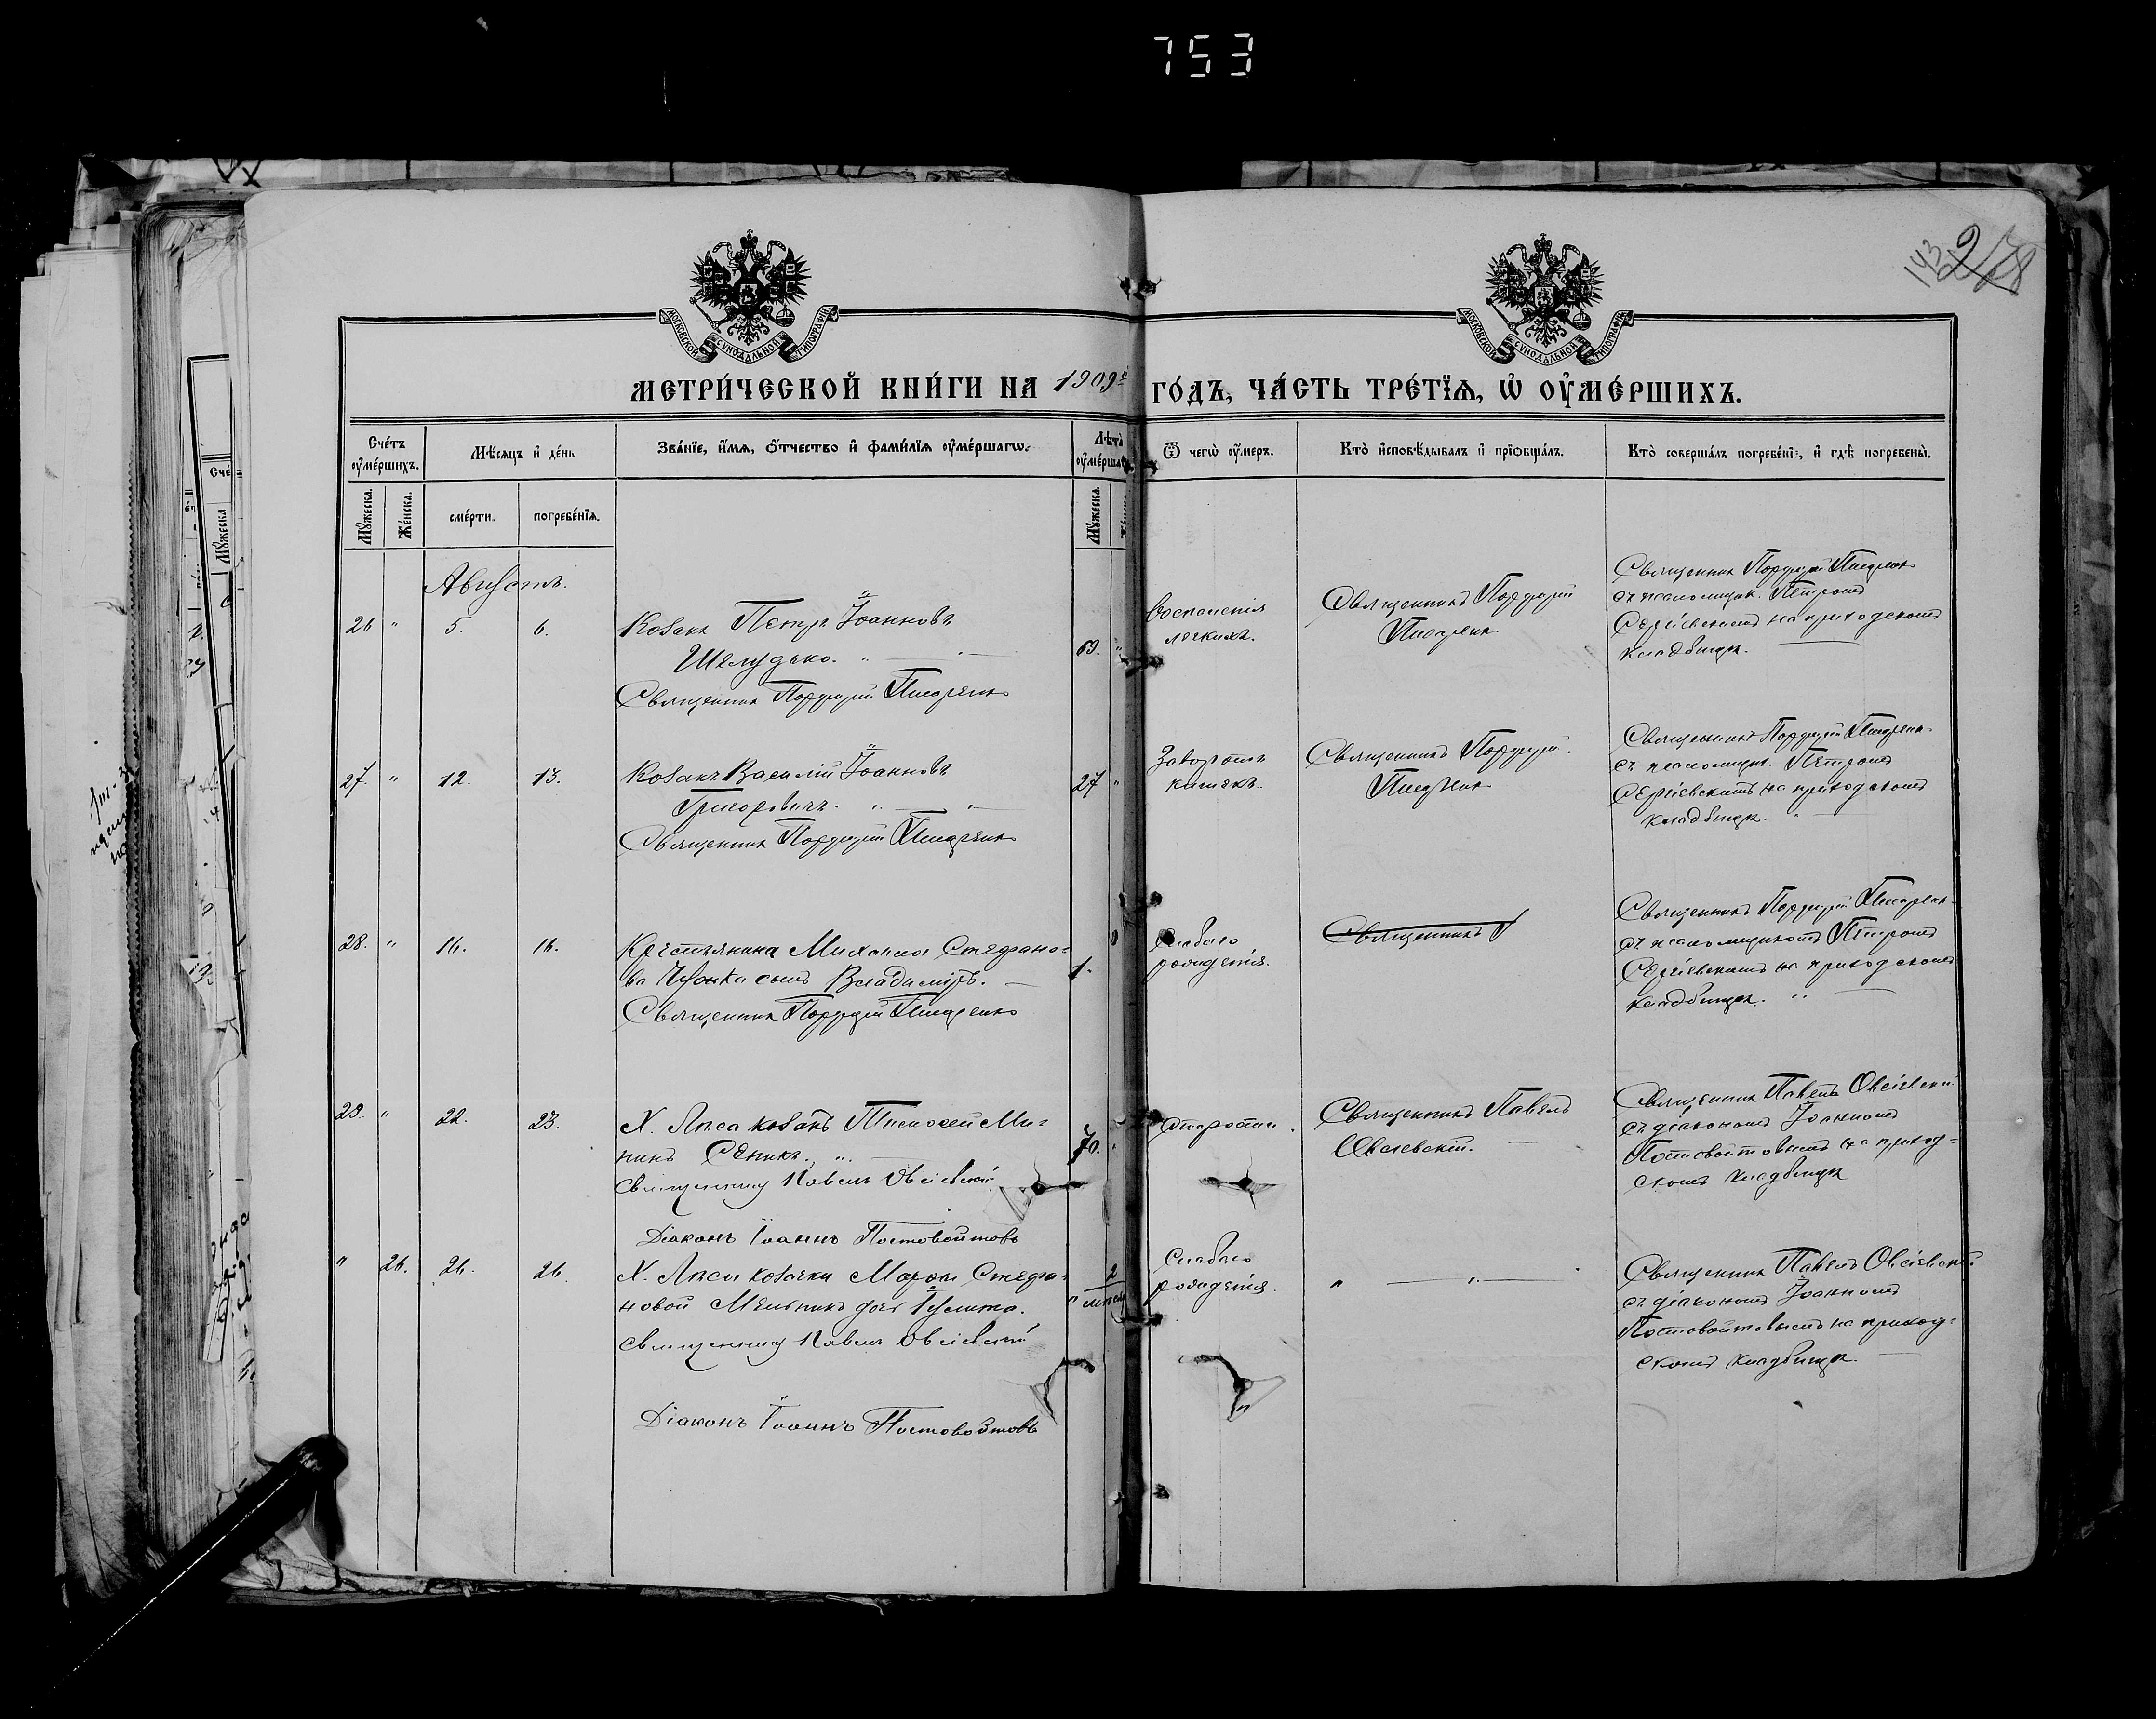 753
МОСКОВСКОЙ СѴНОДАЛЬНОЙ ТИПОГРАФІИ
МОСКОВСКОЙ СѴНОДАЛЬНОЙ ТИПОГРАФІИ
МЕТРИ́ЧЕСКОЙ КНИ́ГИ НА 1909й ГО́ДЪ, ЧА́СТЬ ТРЕ́ТЇѦ, Ѡ҆ ОУ҆МЕ́РШИХЪ.
Сче́тъ оу҆ме́ршихъ.
Мѣ́сяцъ и҆ де́нь
Зва́нїе, и҆́мѧ, ѻ҆́тчество и҆ фами́лїѧ оу҆ме́ршагѡ.
Лѣ́тъ оу҆ме́рша
Ѿ чегѡ̀ оу҆́меръ.
Кто̀ и҆сповѣ́дывалъ и҆ прїѡбща́лъ.
Кто̀ соверша́лъ погребе́нїе, и҆ гдѣ̀ погребены̀.
Мꙋ́жеска.
Же́нска.
сме́рти.
погребе́нїѧ.
Мꙋ́жеска.
Августъ.
26 " 5. 6.
Козакъ Петръ Іоанновъ
Шелудько. "
Священникъ Порфирій Писаренко
69. "
Воспаленія
легкихъ.
Священникъ Порфирій
Писаренко
Священникъ Порфирій Писаренко
съ псаломщик. Петромъ
Сергіевскимъ на приходскомъ
кладбищѣ.
27. " 12. 13.
Козакъ Василій Іоанновъ
Григоровичъ. "
Священникъ Порфирій Писаренко
27 "
Заворотъ
кишекъ.
Священникъ Порфирій
Писаренко
Священникъ Порфирій Писаренко
съ псаломщик. Петромъ
Сергіевскимъ на приходскомъ
кладбищѣ. "
28. " 16. 16.
Крестьянина Михаила Стефано=
ва сынъ Владиміръ.
Священникъ Порфирій Писаренко
1.
Слабаго
рожденія.
Священникъ
Священникъ Порфирій Писаренко
съ псаломщикомъ Петромъ
Сергіевскимъ на приходскомъ
кладбищѣ. "
29. " 22. 23.
Х. Лиса козакъ Тимофей Ми=
нинъ Сеникъ. "
Священникъ Павелъ Овсіевскій
Діаконъ Іоаннъ Постовойтовъ
70. "
Старости.
Священникъ Павелъ
Овсіевскій.
Священникъ Павелъ Овсіевскій
съ діакономъ Іоанномъ
Постовойтовымъ на приход=
скомъ кладбищѣ
" 26. 26. 26.
Х. Лиса козачки Марѳы Стефа=
новой Мельникъ дочь Іулита.
Священникъ Павелъ Овсіевскій
Діаконъ Іоаннъ Постовойтовъ
" 2
Слабаго
рожденія.
" "
Священникъ Павелъ Овсіевскій
съ діакономъ Іоанномъ
Постовойтовымъ на приход=
скомъ кладбищѣ.